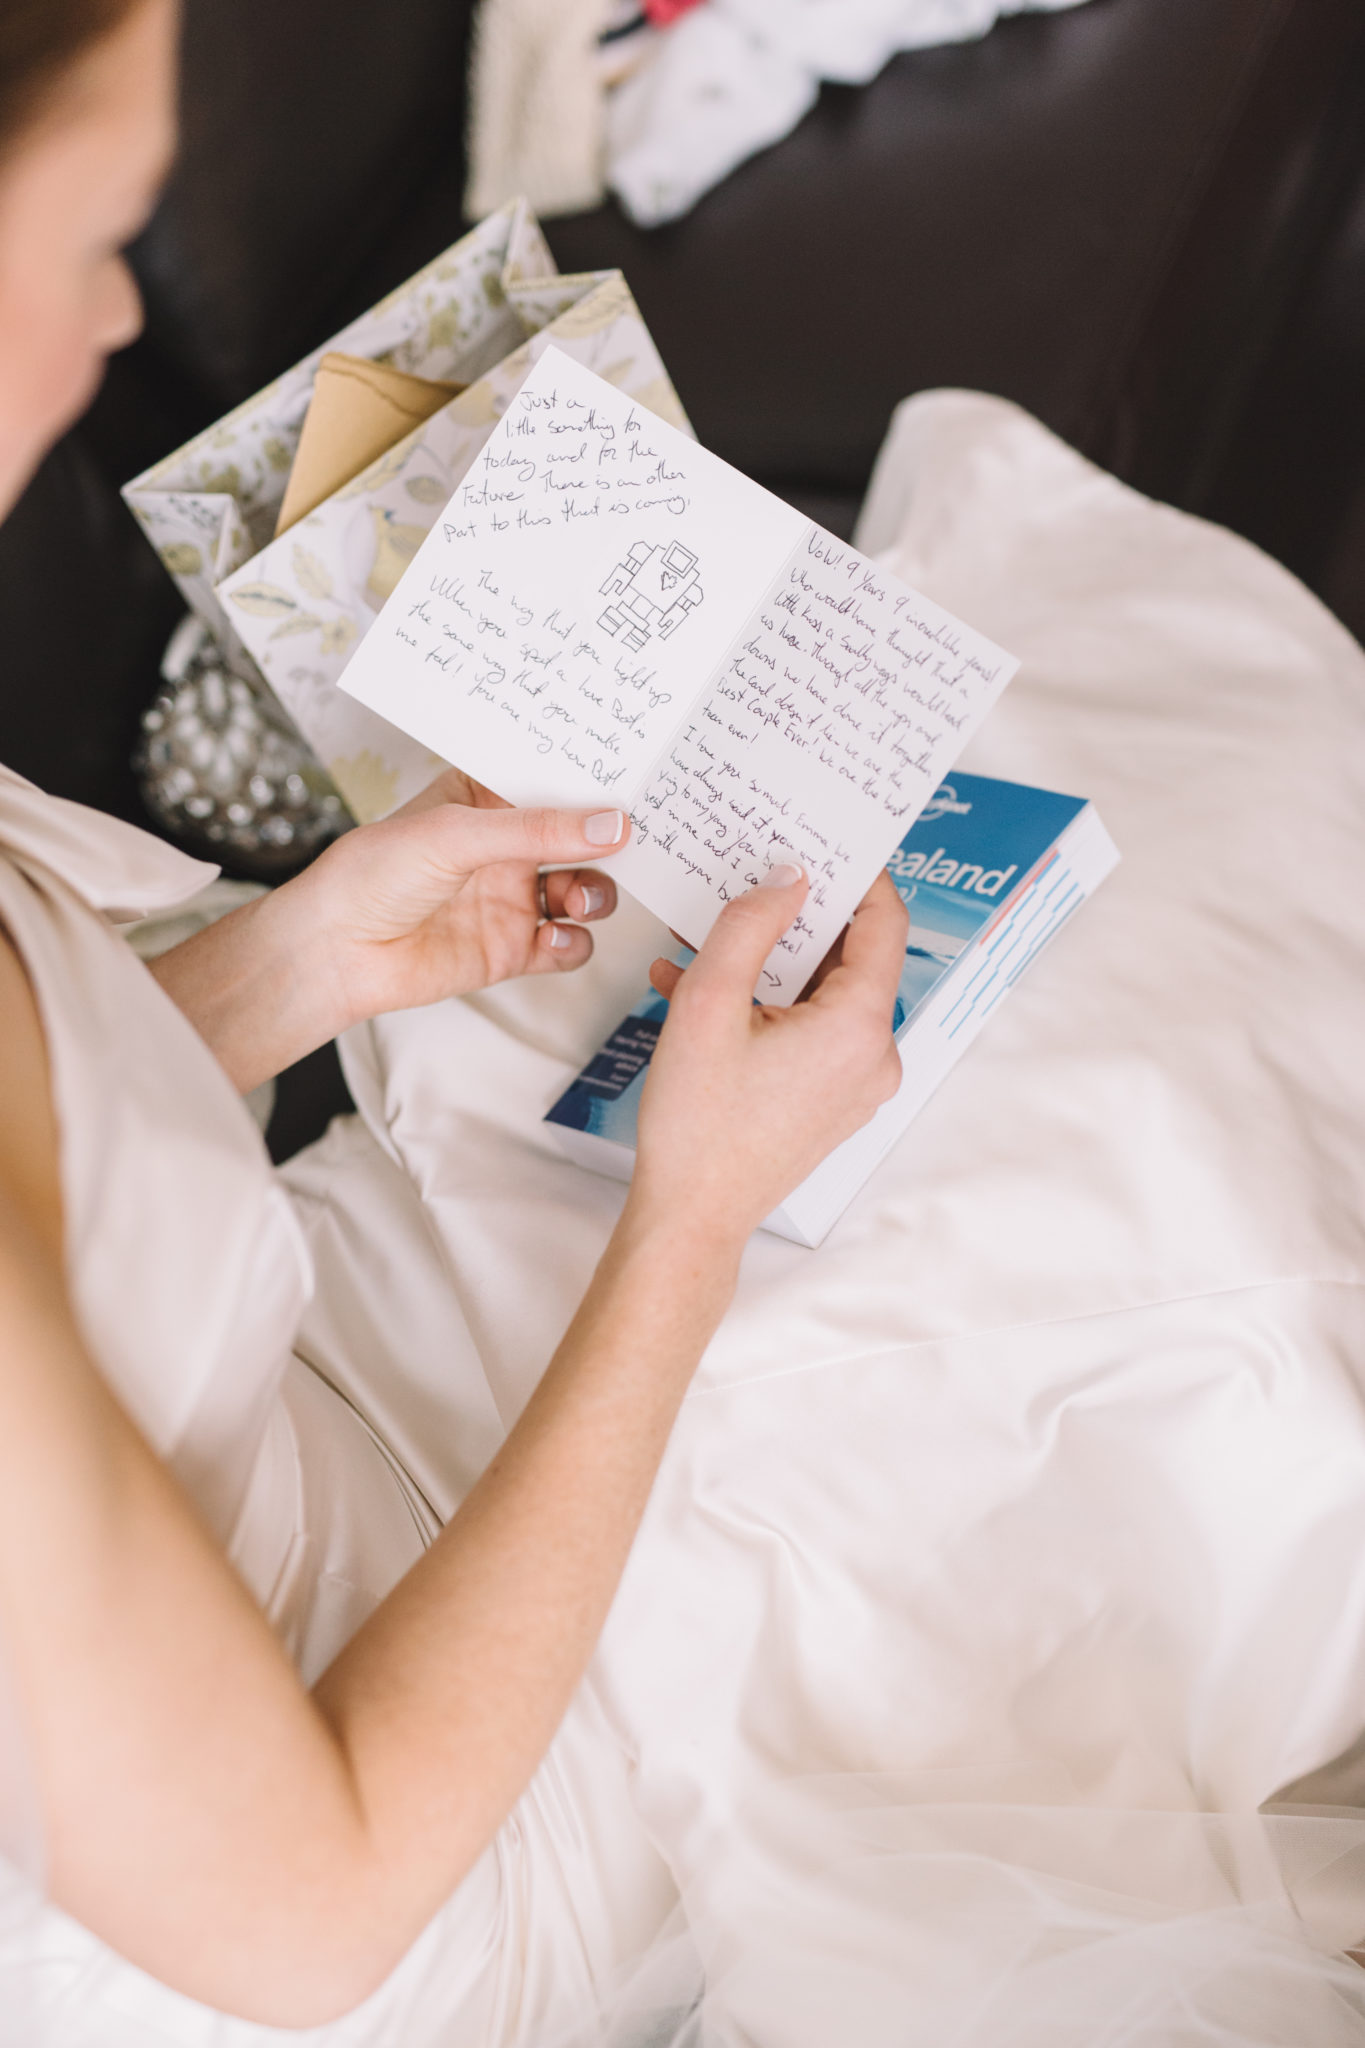 Just a
little something for
today and for the
Future There is an other
Part to this that is coming.
The way that you light up
When you spot a love Bot is
the same way that you make
me feel! You are my love Bot!
WoW! 9 Years 9 incredible years!
Who would have thought that a
little kiss a Sandy ways would lead
us here. Through all the ups and
downs we have done it together.
The card doesn't lie - we are the
Best Couple Ever! We are the best
team ever!
I love you so much Emma We
have always said it, you are the
ying to my yang. You the
best in me and I
today with anyone
ealand